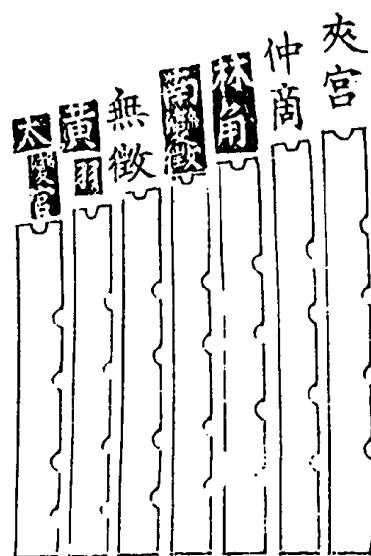 夾宮
仲商
林角
南變徵
無徵
黃羽
太變宮